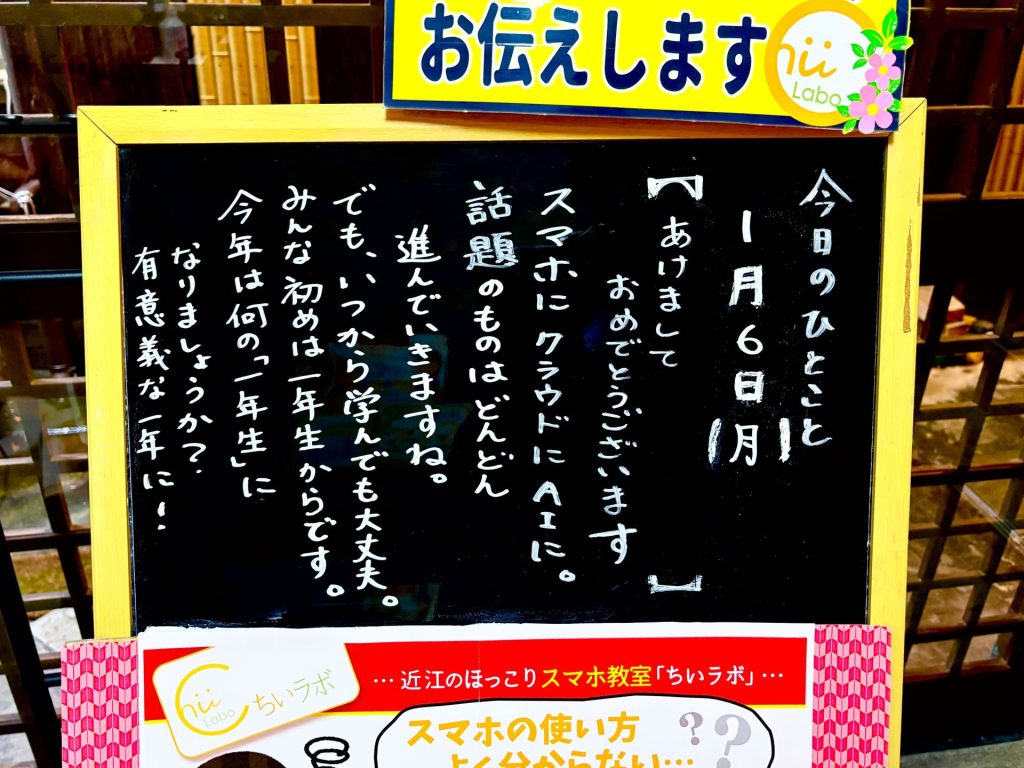 お伝えします
hii
Labo
今日のひとこと
1月6日(月)
【あけまして
おめでとうございます】
スマホにクラウドにAIに。
話題のものはどんどん
進んでいきますね。
でも、いつから学んでも大丈夫。
みんな初めは一年生からです。
今年は何の「一年生」に
なりましょうか?
有意義な一年に!
Chii
Labo
ちいラボ
…近江のほっこりスマホ教室「ちいラボ」…
スマホの使い方
よく分からない…
??